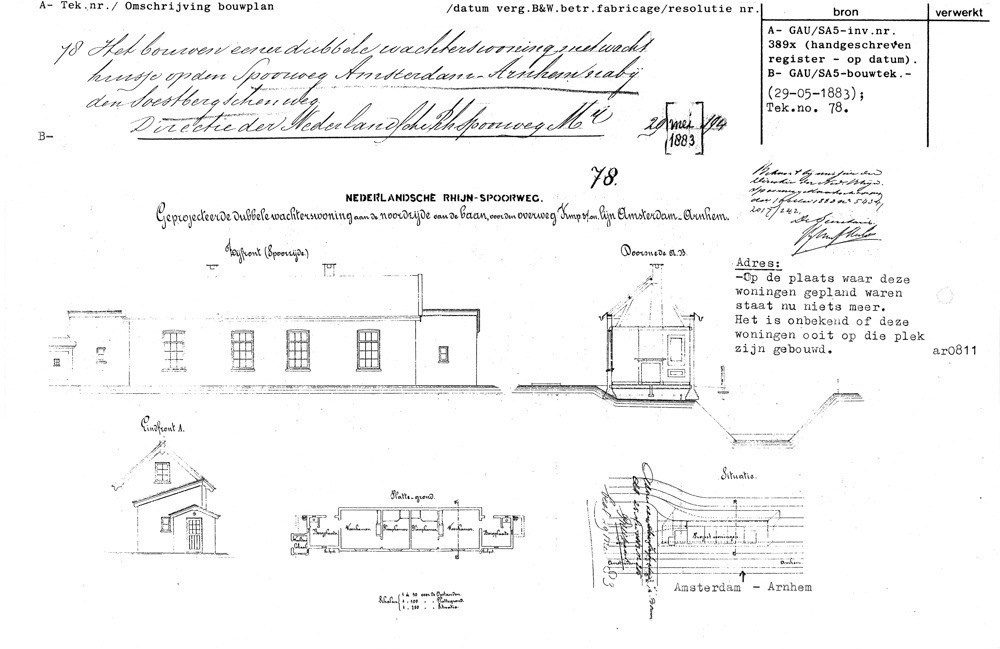 A- Tek.nr./ Omschrijving bouwplan
/datum verg.B&W.betr.fabricage/resolutie nr.
bron
verwerkt
78 Het bouwen eener dubbele wachterswoning, met wacht
huisje op den Spoorweg Amsterdam-Arnhem nabij
den Soestbergschenweg
B-
Directie der Nederlandsche Rhspoorweg Mij
29 mei 1883
194
A- GAU/SA5-inv.nr.
389x (handgeschreven
register - op datum).
B- GAU/SA5-bouwtek.-
(29-05-1883);
Tek.no. 78.
78.
NEDERLANDSCHE RHIJN-SPOORWEG.
Geprojecteerde dubbele wachterswoning aan de noordzijde van de baan, voor den overweg lijn Amsterdam-Arnhem.
De Secretaris
Adres:
-Op de plaats waar deze
woningen gepland waren
staat nu niets meer.
Het is onbekend of deze
woningen ooit op die plek
zijn gebouwd.
ar0811
Zijfront (Spoorzijde)
Doorsnede A.B.
Eindfront A.
Platte-grond.
Situatie.
Amsterdam
Arnhem
Amsterdam - Arnhem
Schalen
1 à 50 voor de Opstanden
1 - 100 " " Plattegrond.
1 - 250 " " Situatie.